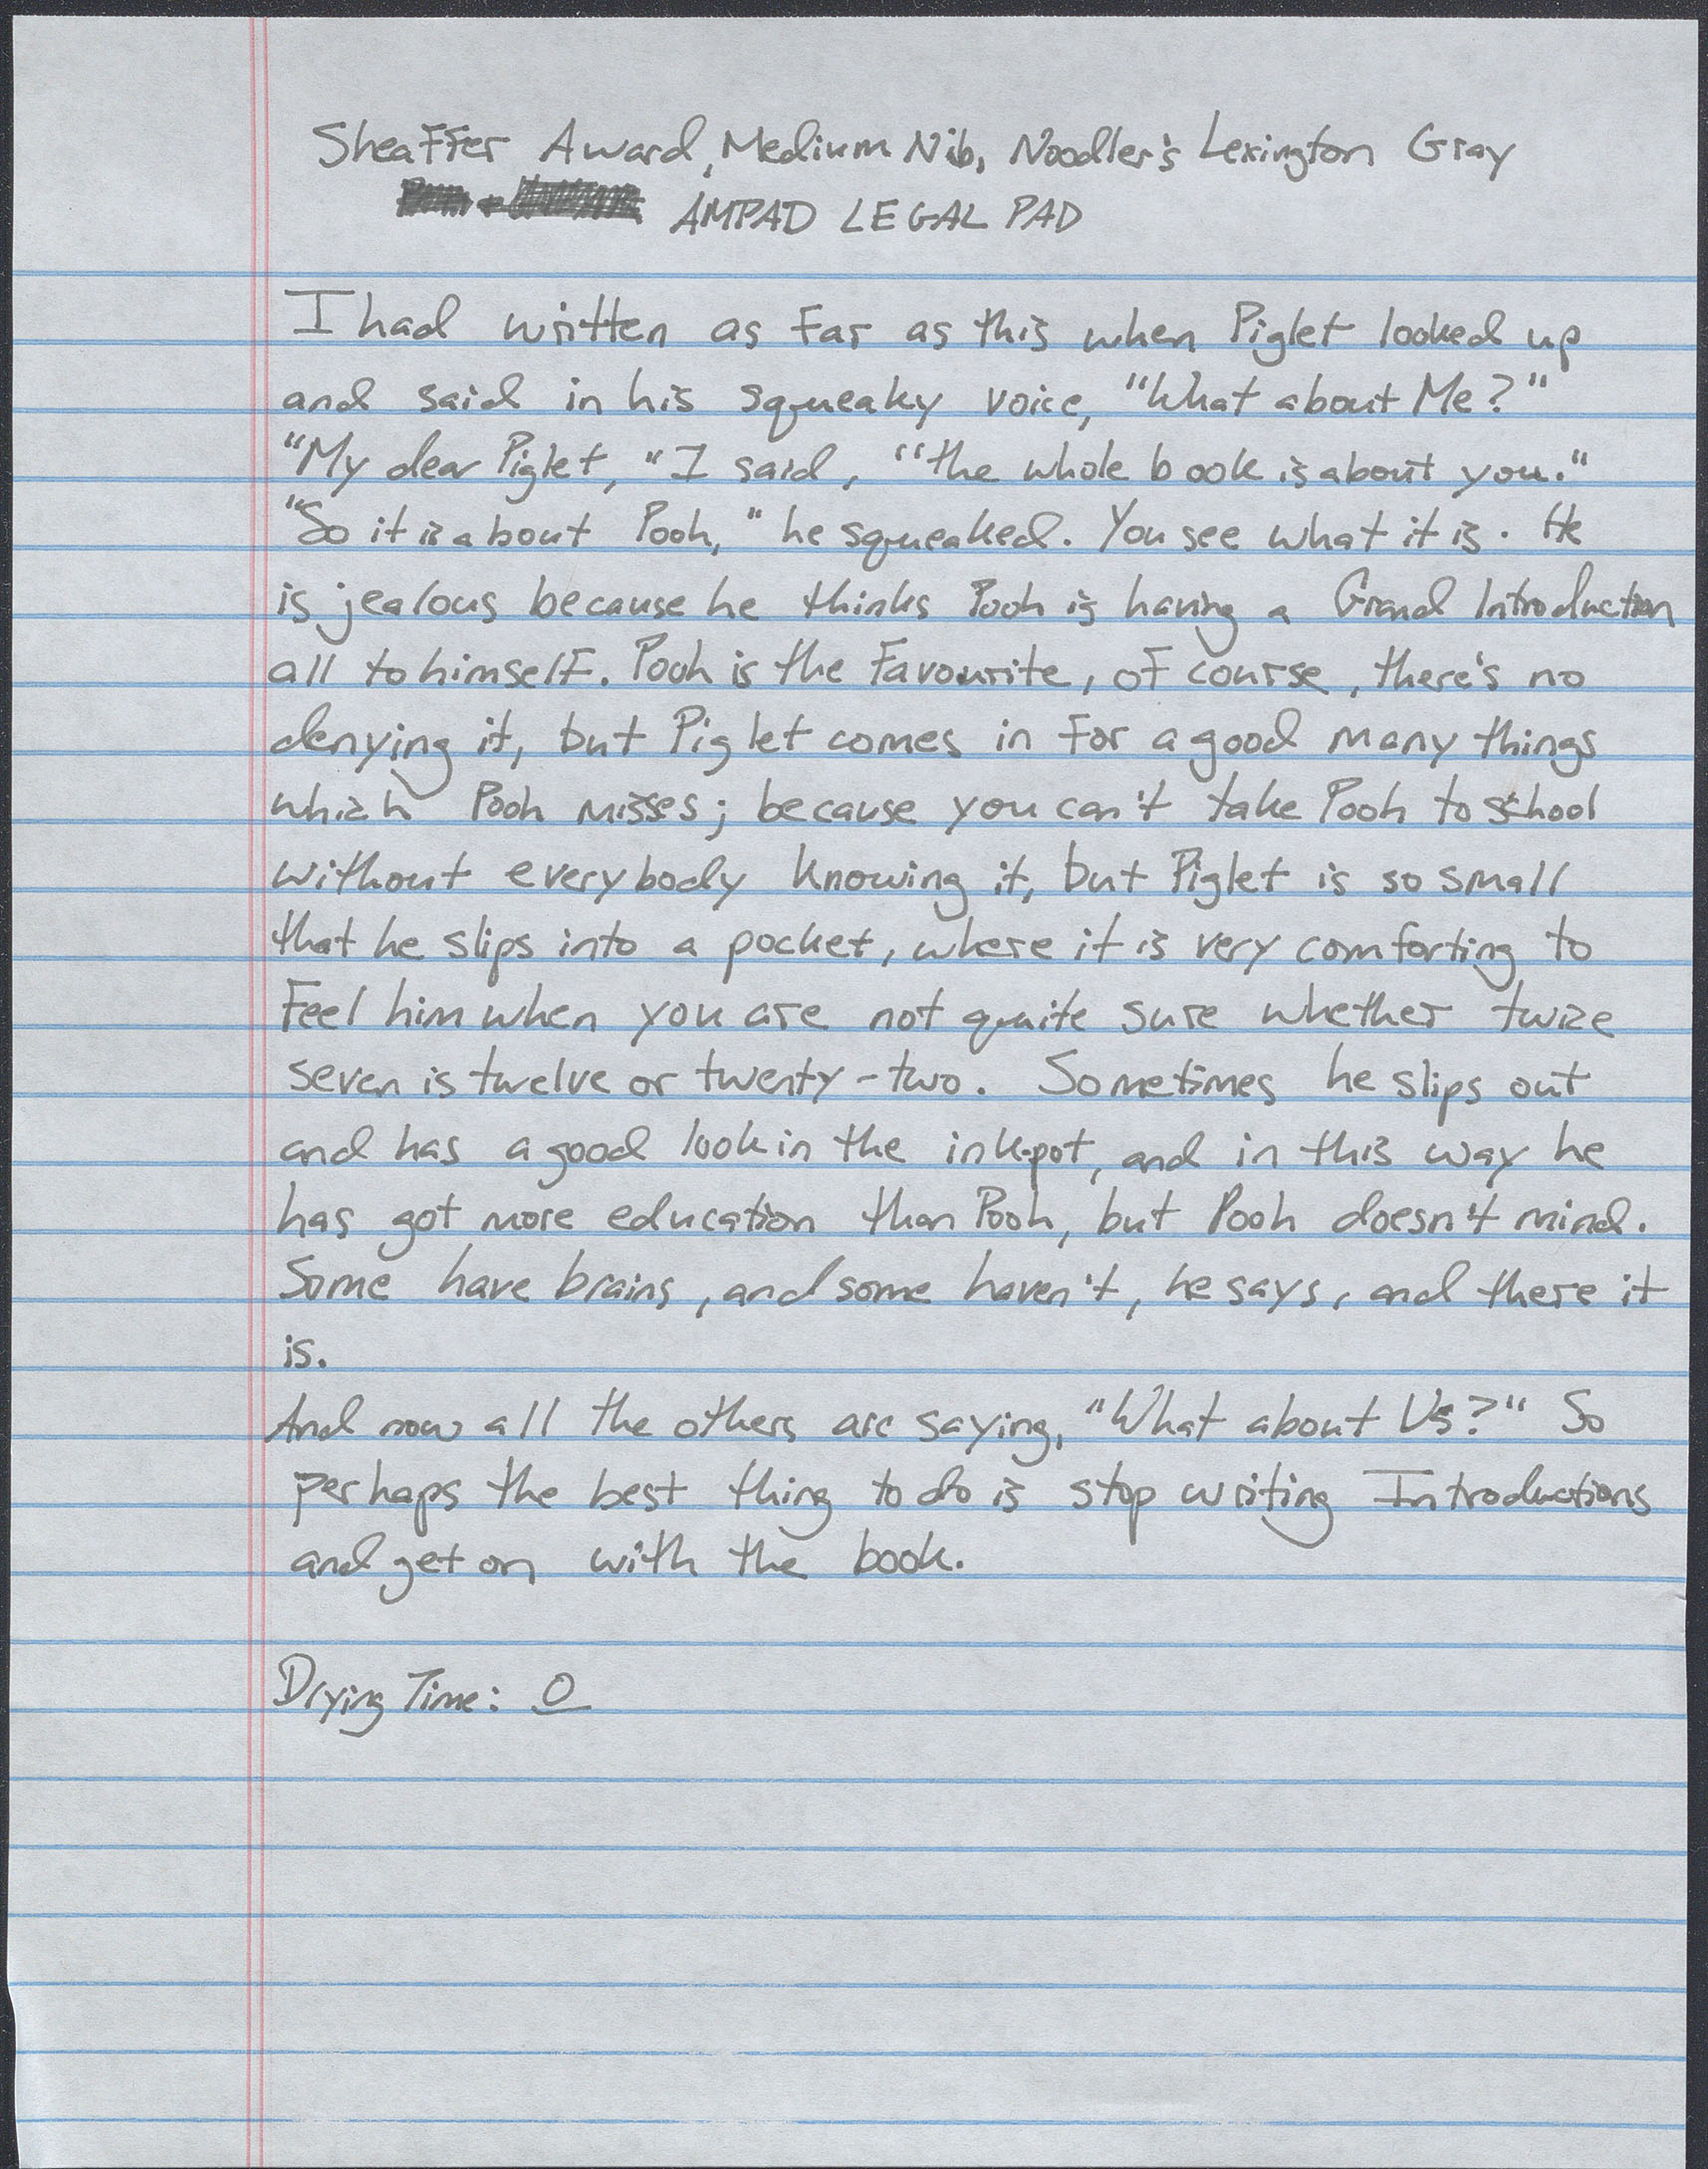 Sheaffer Award, Medium Nib, Noodler's Lexington Gray
AMPAD LEGAL PAD
I had written as far as this when Piglet looked up
and said in his squeaky voice, "What about Me?"
"My dear Piglet," I said, "the whole book is about you."
"So it is about Pooh," he squeaked. You see what it is. He
is jealous because he thinks Pooh is having a Grand Introduction
all to himself. Pooh is the favourite, of course, there's no
denying it, but Piglet comes in for a good many things
which Pooh misses; because you can't take Pooh to school
without everybody knowing it, but Piglet is so small
that he slips into a pocket, where it is very comforting to
feel him when you are not quite sure whether twice
seven is twelve or twenty-two. Sometimes he slips out
and has a good look in the ink-pot, and in this way he
has got more education than Pooh, but Pooh doesn't mind.
Some have brains, and some haven't, he says, and there it
is.
And now all the others are saying, "What about Us?" So
perhaps the best thing to do is stop writing Introductions
and get on with the book.
Drying Time: 0